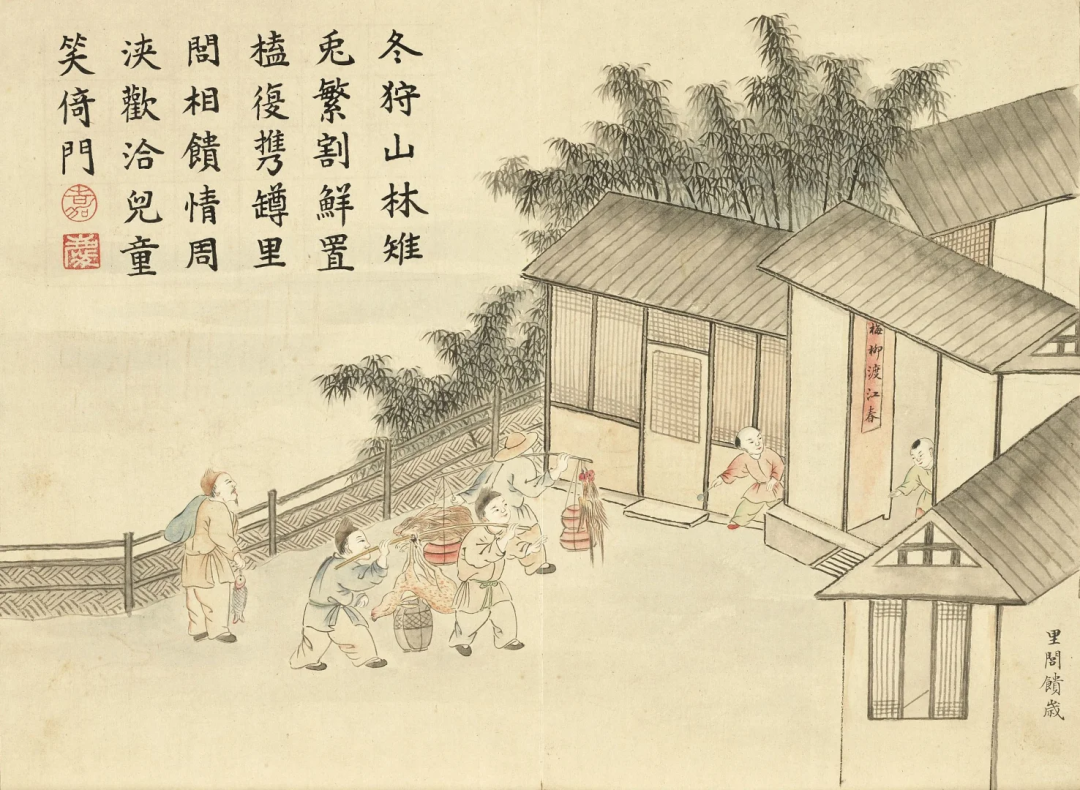 冬狩山林雉
兎繁割鮮置
榼復携罇里
閭相饋情周
浹歡洽兒童
笑倚門
梅柳渡江春
里閭饋歲